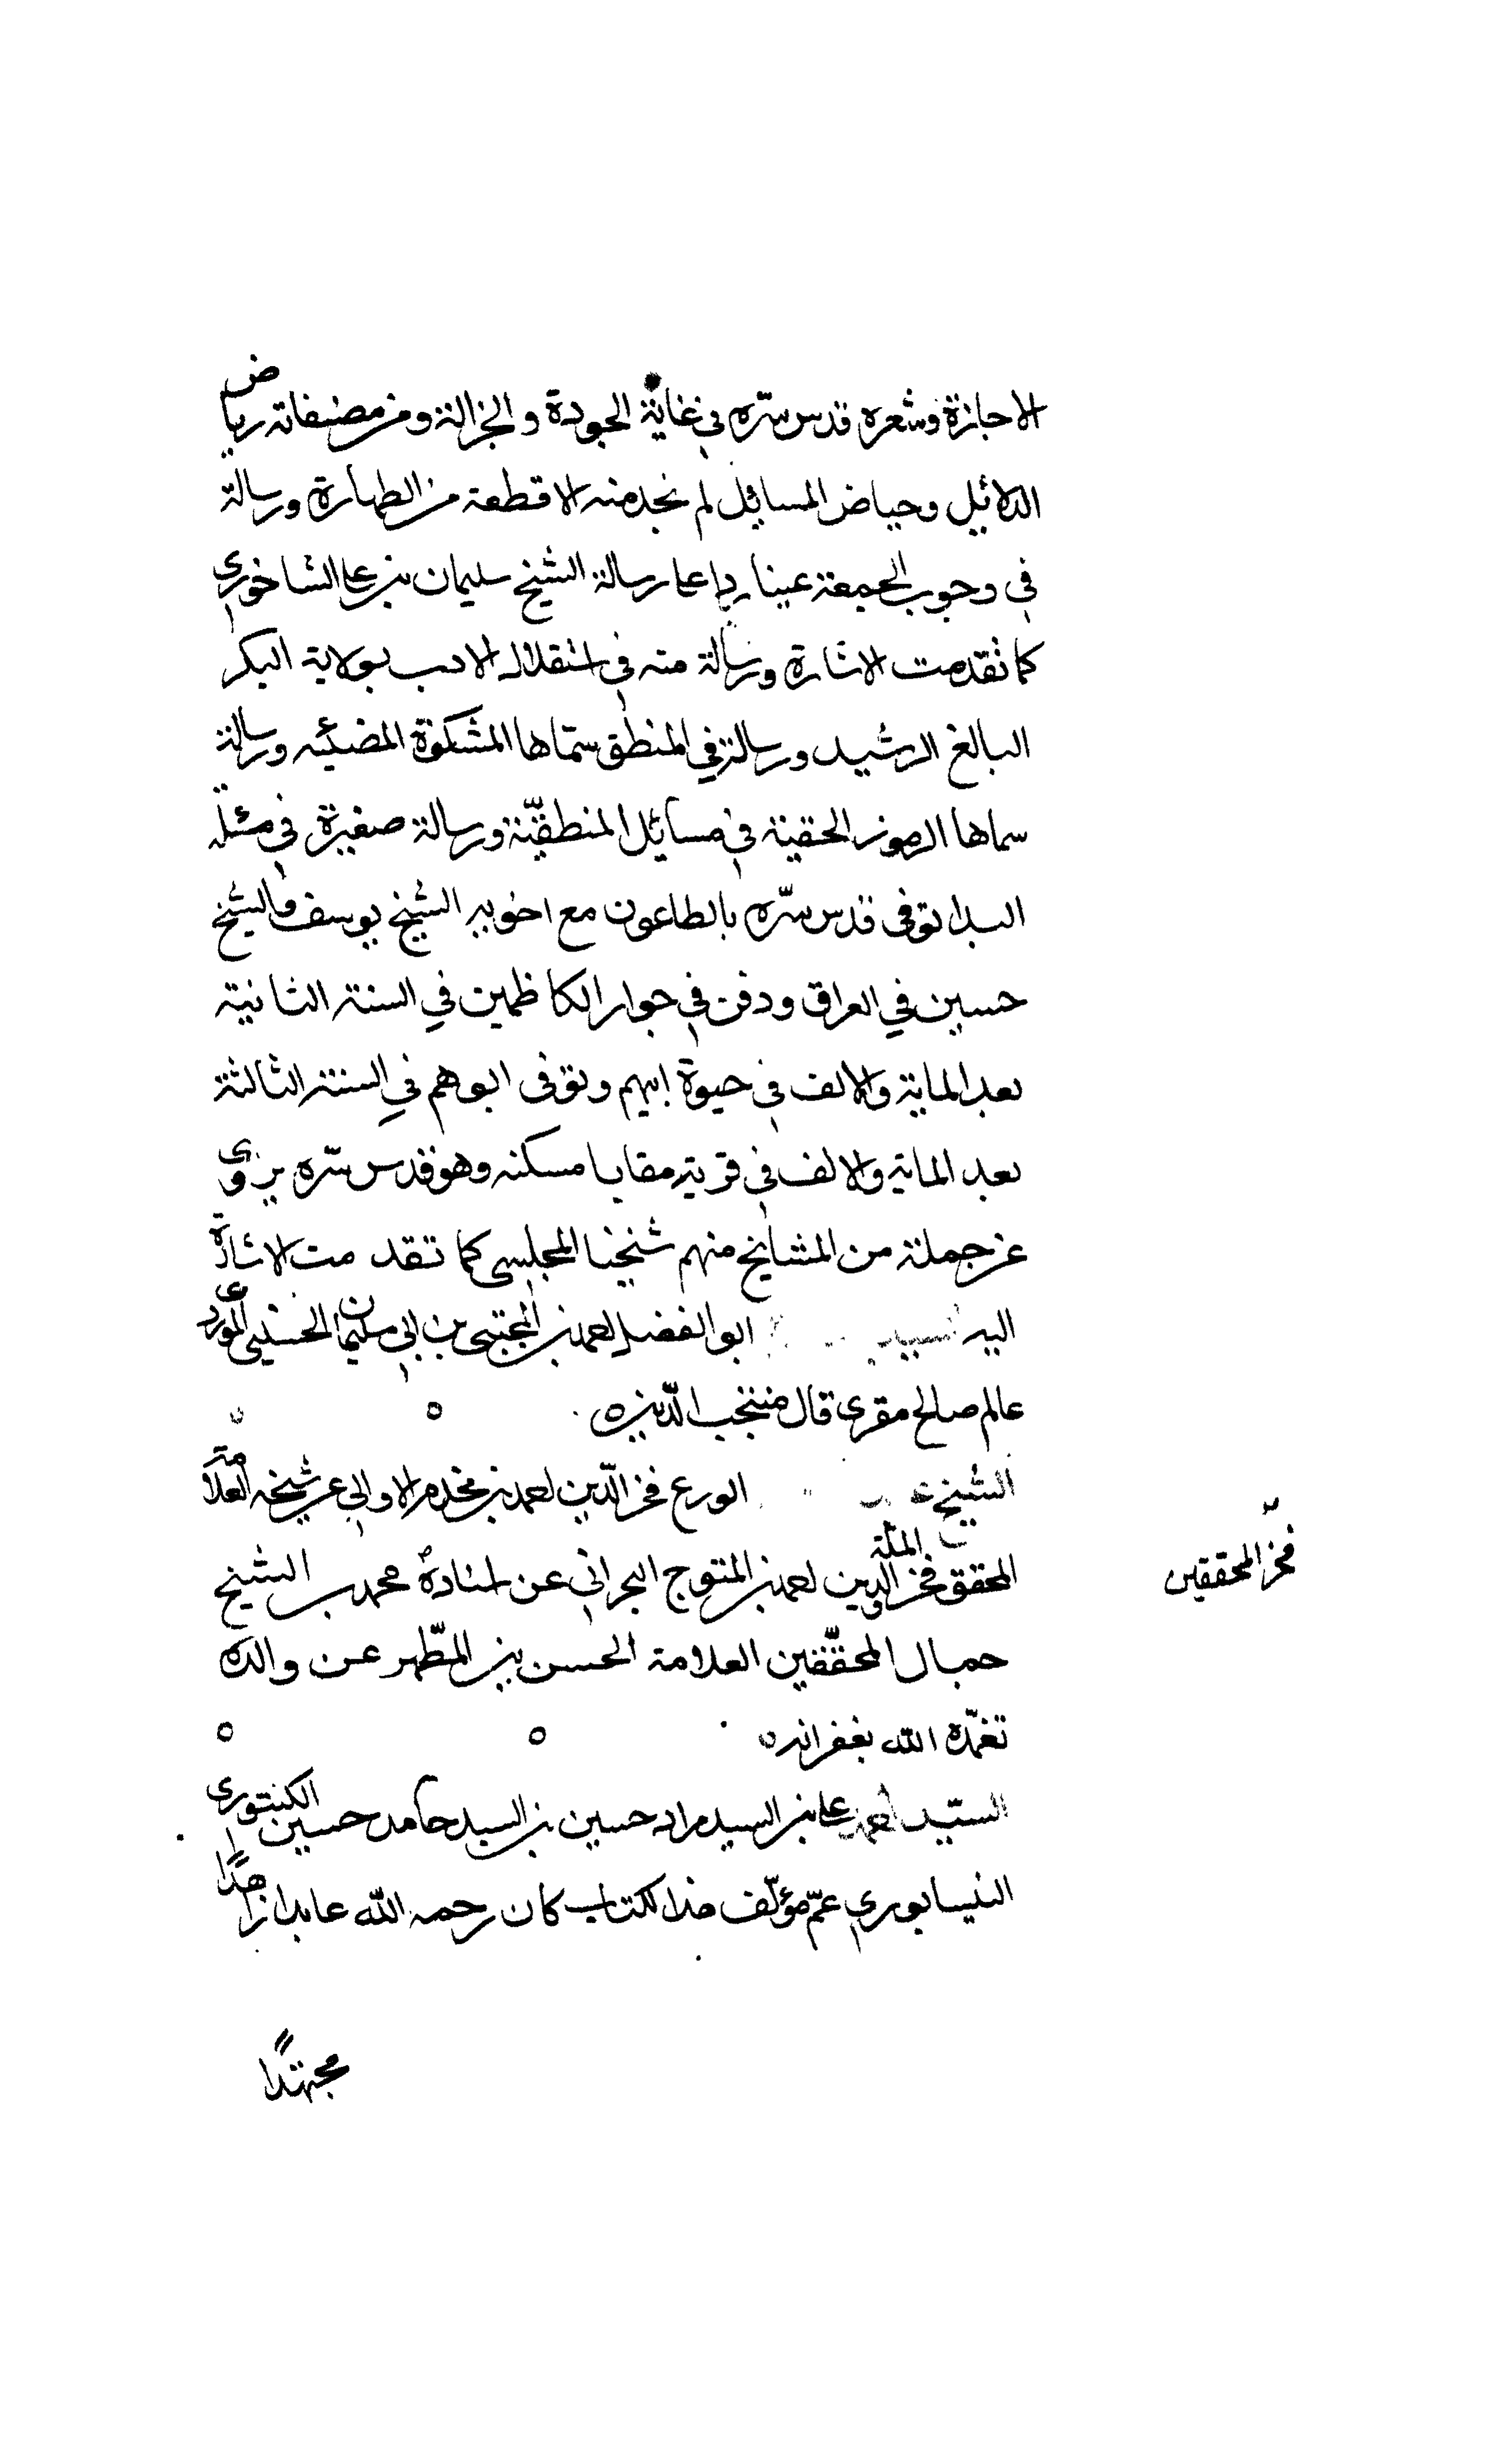 الاجازة وشعره قدس سرّه في غاية الجودة والجزالة ومن مصنفاته رياض
الدلائل وحياض المسائل لم نجد منه الا قطعة من الطهارة ورسالة
في وجوب الجمعة عينا ردا على رسالة الشيخ سليمان بن على الشاخورى
كما تقدمت الاشارة ورسالة منه في استقلال الاب بولاية البكر
البالغ الرشيد ورسالة في المنطق سمّاها المشكوة المضيئه ورسالة
سماها الرموز الخفية في مسائل المنطقيّة ورسالة صغيرة في مسئلة
البدا توفى قدس سّره بالطاعون مع اخويه الشيخ يوسف والشيخ
حسين في العراق ودفن في جوار الكاظمين في السنة الثانية
بعد الماية والالف في حيوة ابيهم وتوفى ابوهم في السنة الثالثة
بعد الماية والالف في قرية مقابا مسكنه وهو قدس سّره يروى
عن جملة من المشايخ منهم شيخنا المجلسى كما تقدمت الاشارة
اليه السيد ابو الفضل احمد بن المجتبى بن ابي سليمان الحسيني الموردى
عالم صالح مقرى قال منتجب الدّين ه
الشيخ الورع فخر الدّين احمد بن مخدم الاوالي عن شيخه العلامة
المحقق فخر الملة والدين احمد بن المتوج البحراني عن استاده محمد بن الشيخ
فخر المحققين
جمال المحقّقين العلامة الحسن بن المطّهر عن والده
تغمّده الله بغفرانه ه
السيّد احمد على بن السيد مراد حسين بن السيد حامد حسين الكنتورى
النيسابورى عمّ مؤلّف هذا الكتاب كان رحمه الله عابدا زاهدًا
مجتهدًا